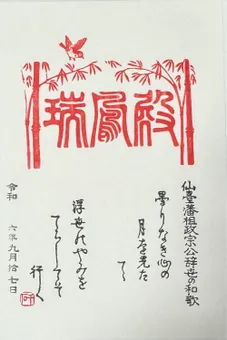 瑞鳳殿
仙臺藩祖政宗公辞世の和歌
曇りなき心の
月を先た
てゝ
浮世のやみを
てらしてそ
行く
令和 六年九月拾七日